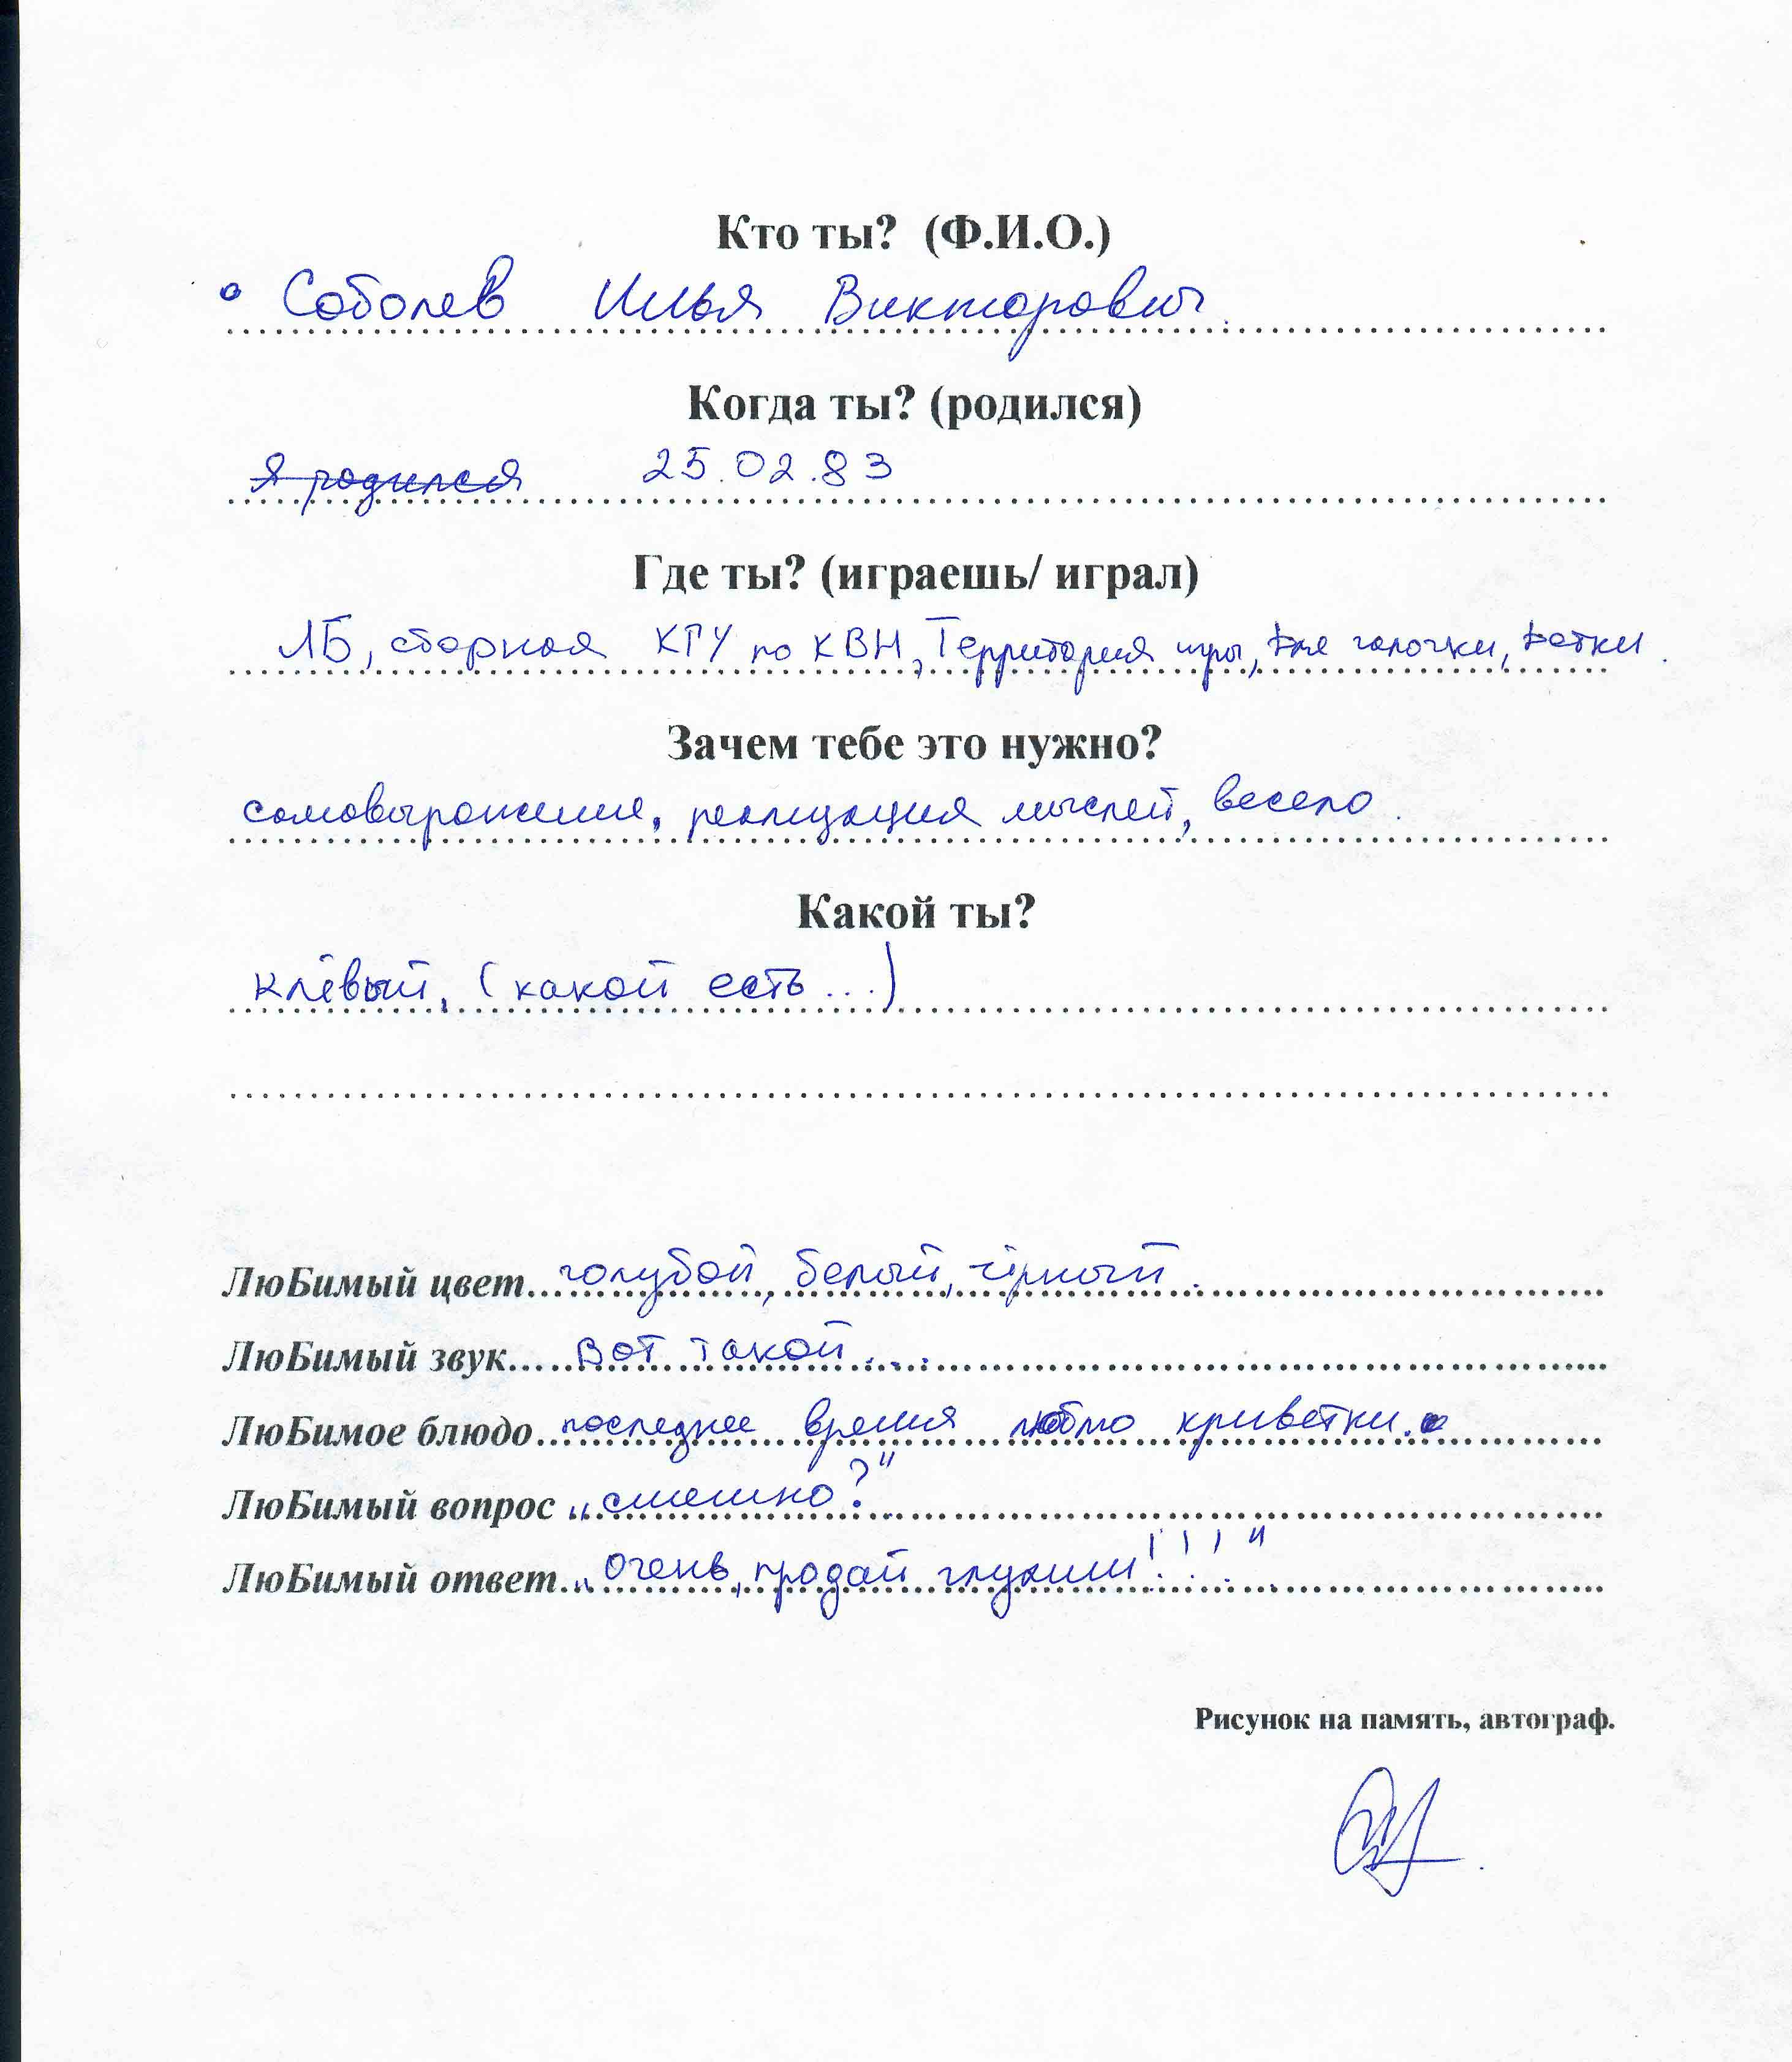 Кто ты? (Ф.И.О.)
Соболев Илья Викторович.
Когда ты? (родился)
я родился 25.02.83
Где ты? (играешь/ играл)
ЛБ, сборная КГУ по КВН, Территория игры, Для галочки,
Зачем тебе это нужно?
самовыражение, реализация мыслей, весело.
Какой ты?
клёвый, (какой есть...)
ЛюБимый цвет... голубой, белый, чёрный.
ЛюБимый звук... Вот такой...
ЛюБимое блюдо... последнее время люблю криветки.
ЛюБимый вопрос „смешно?"
ЛюБимый ответ... „очень, продай глухим!!!"
Рисунок на память, автограф.